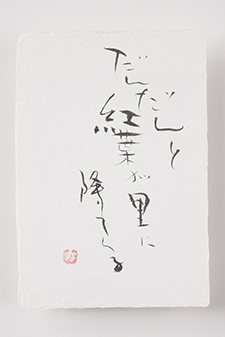 だんだんと
紅葉が里に
降りてくる